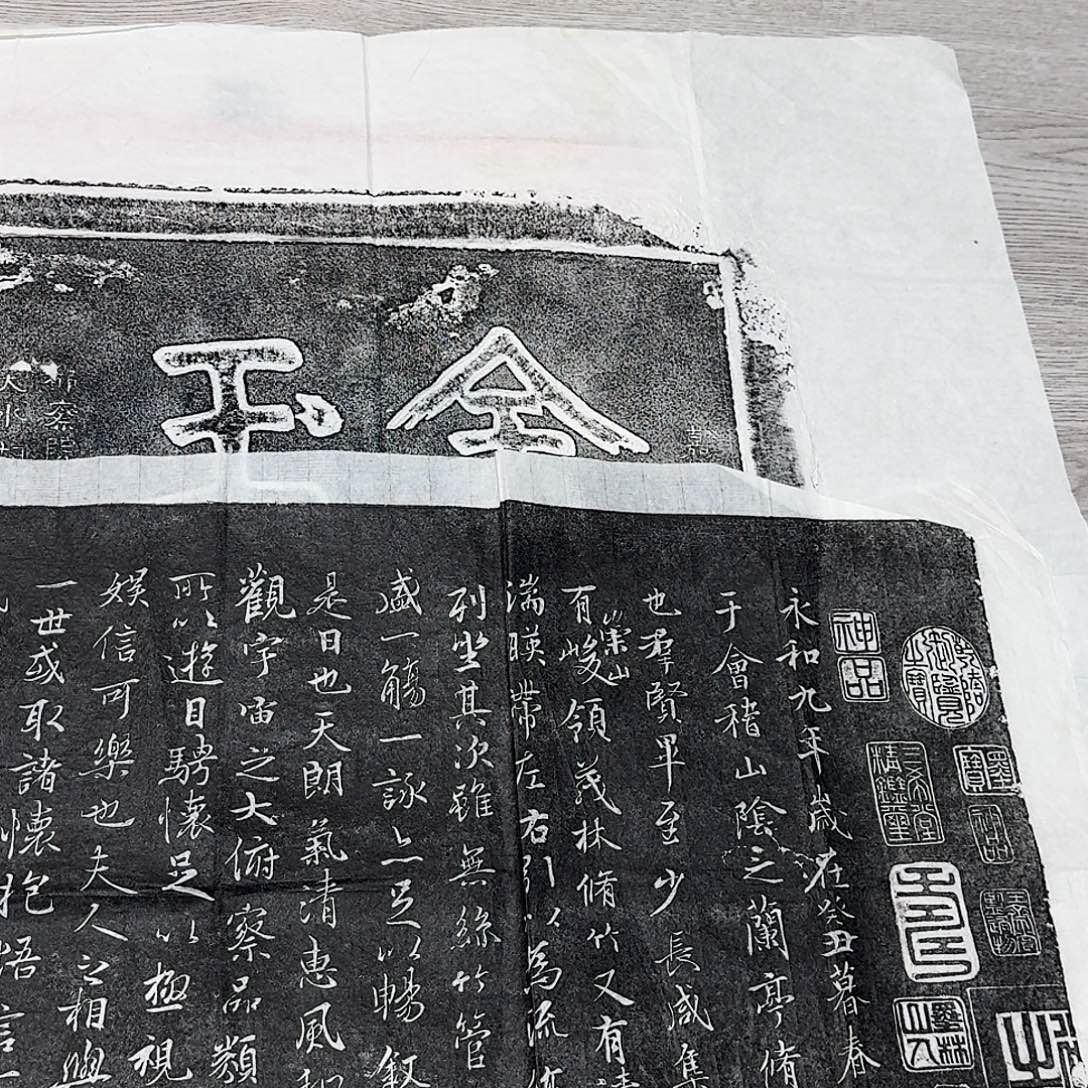 玉
乾隆御覽之寶
神品
三希堂精鑑璽
永和九年歲在癸丑暮春
于會稽山陰之蘭亭脩
也羣賢畢至少長咸集
有崇山峻領茂林脩竹又有清
湍暎帶左右引以為流
列坐其次雖無絲竹管
盛一觴一詠亦足以暢叙
是日也天朗氣清惠風和
觀宇宙之大俯察品類
所以遊目騁懷足以極視
娛信可樂也夫人之相與
一世或取諸懷抱悟言